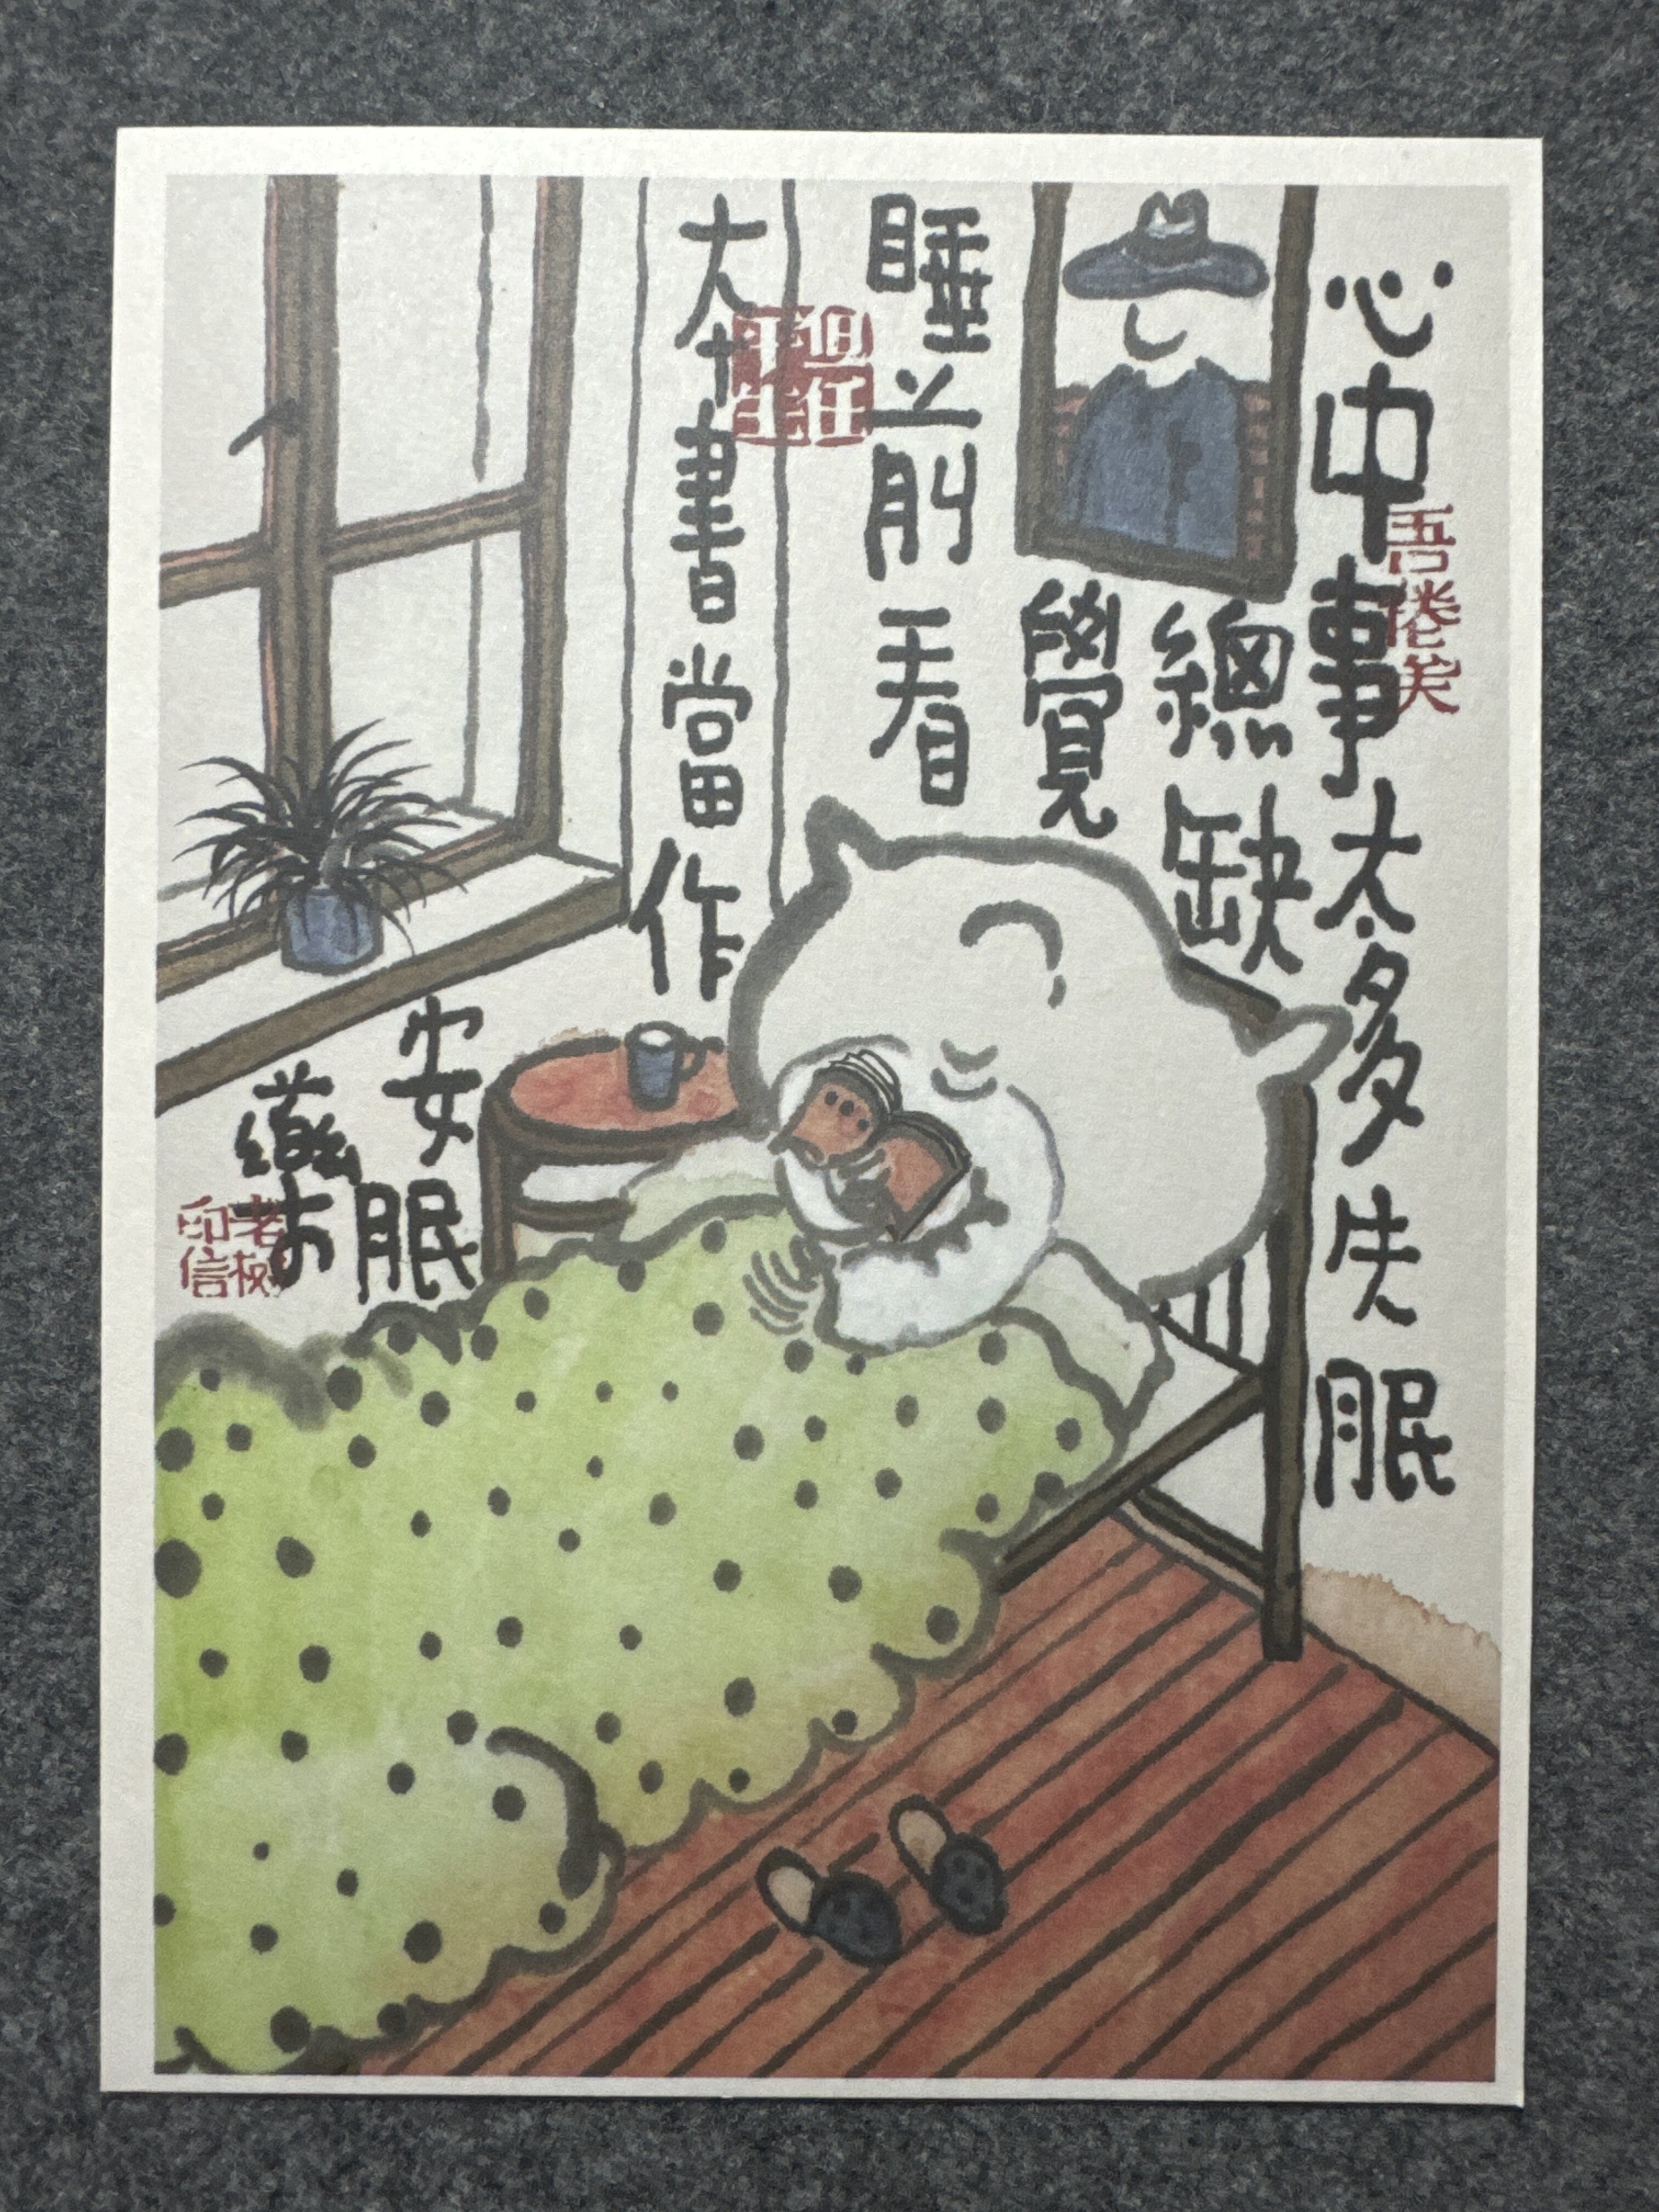 心中事太多失眠
吾倦矣
總缺
覺
睡前看
本書當作
安眠
藥
老树
印信